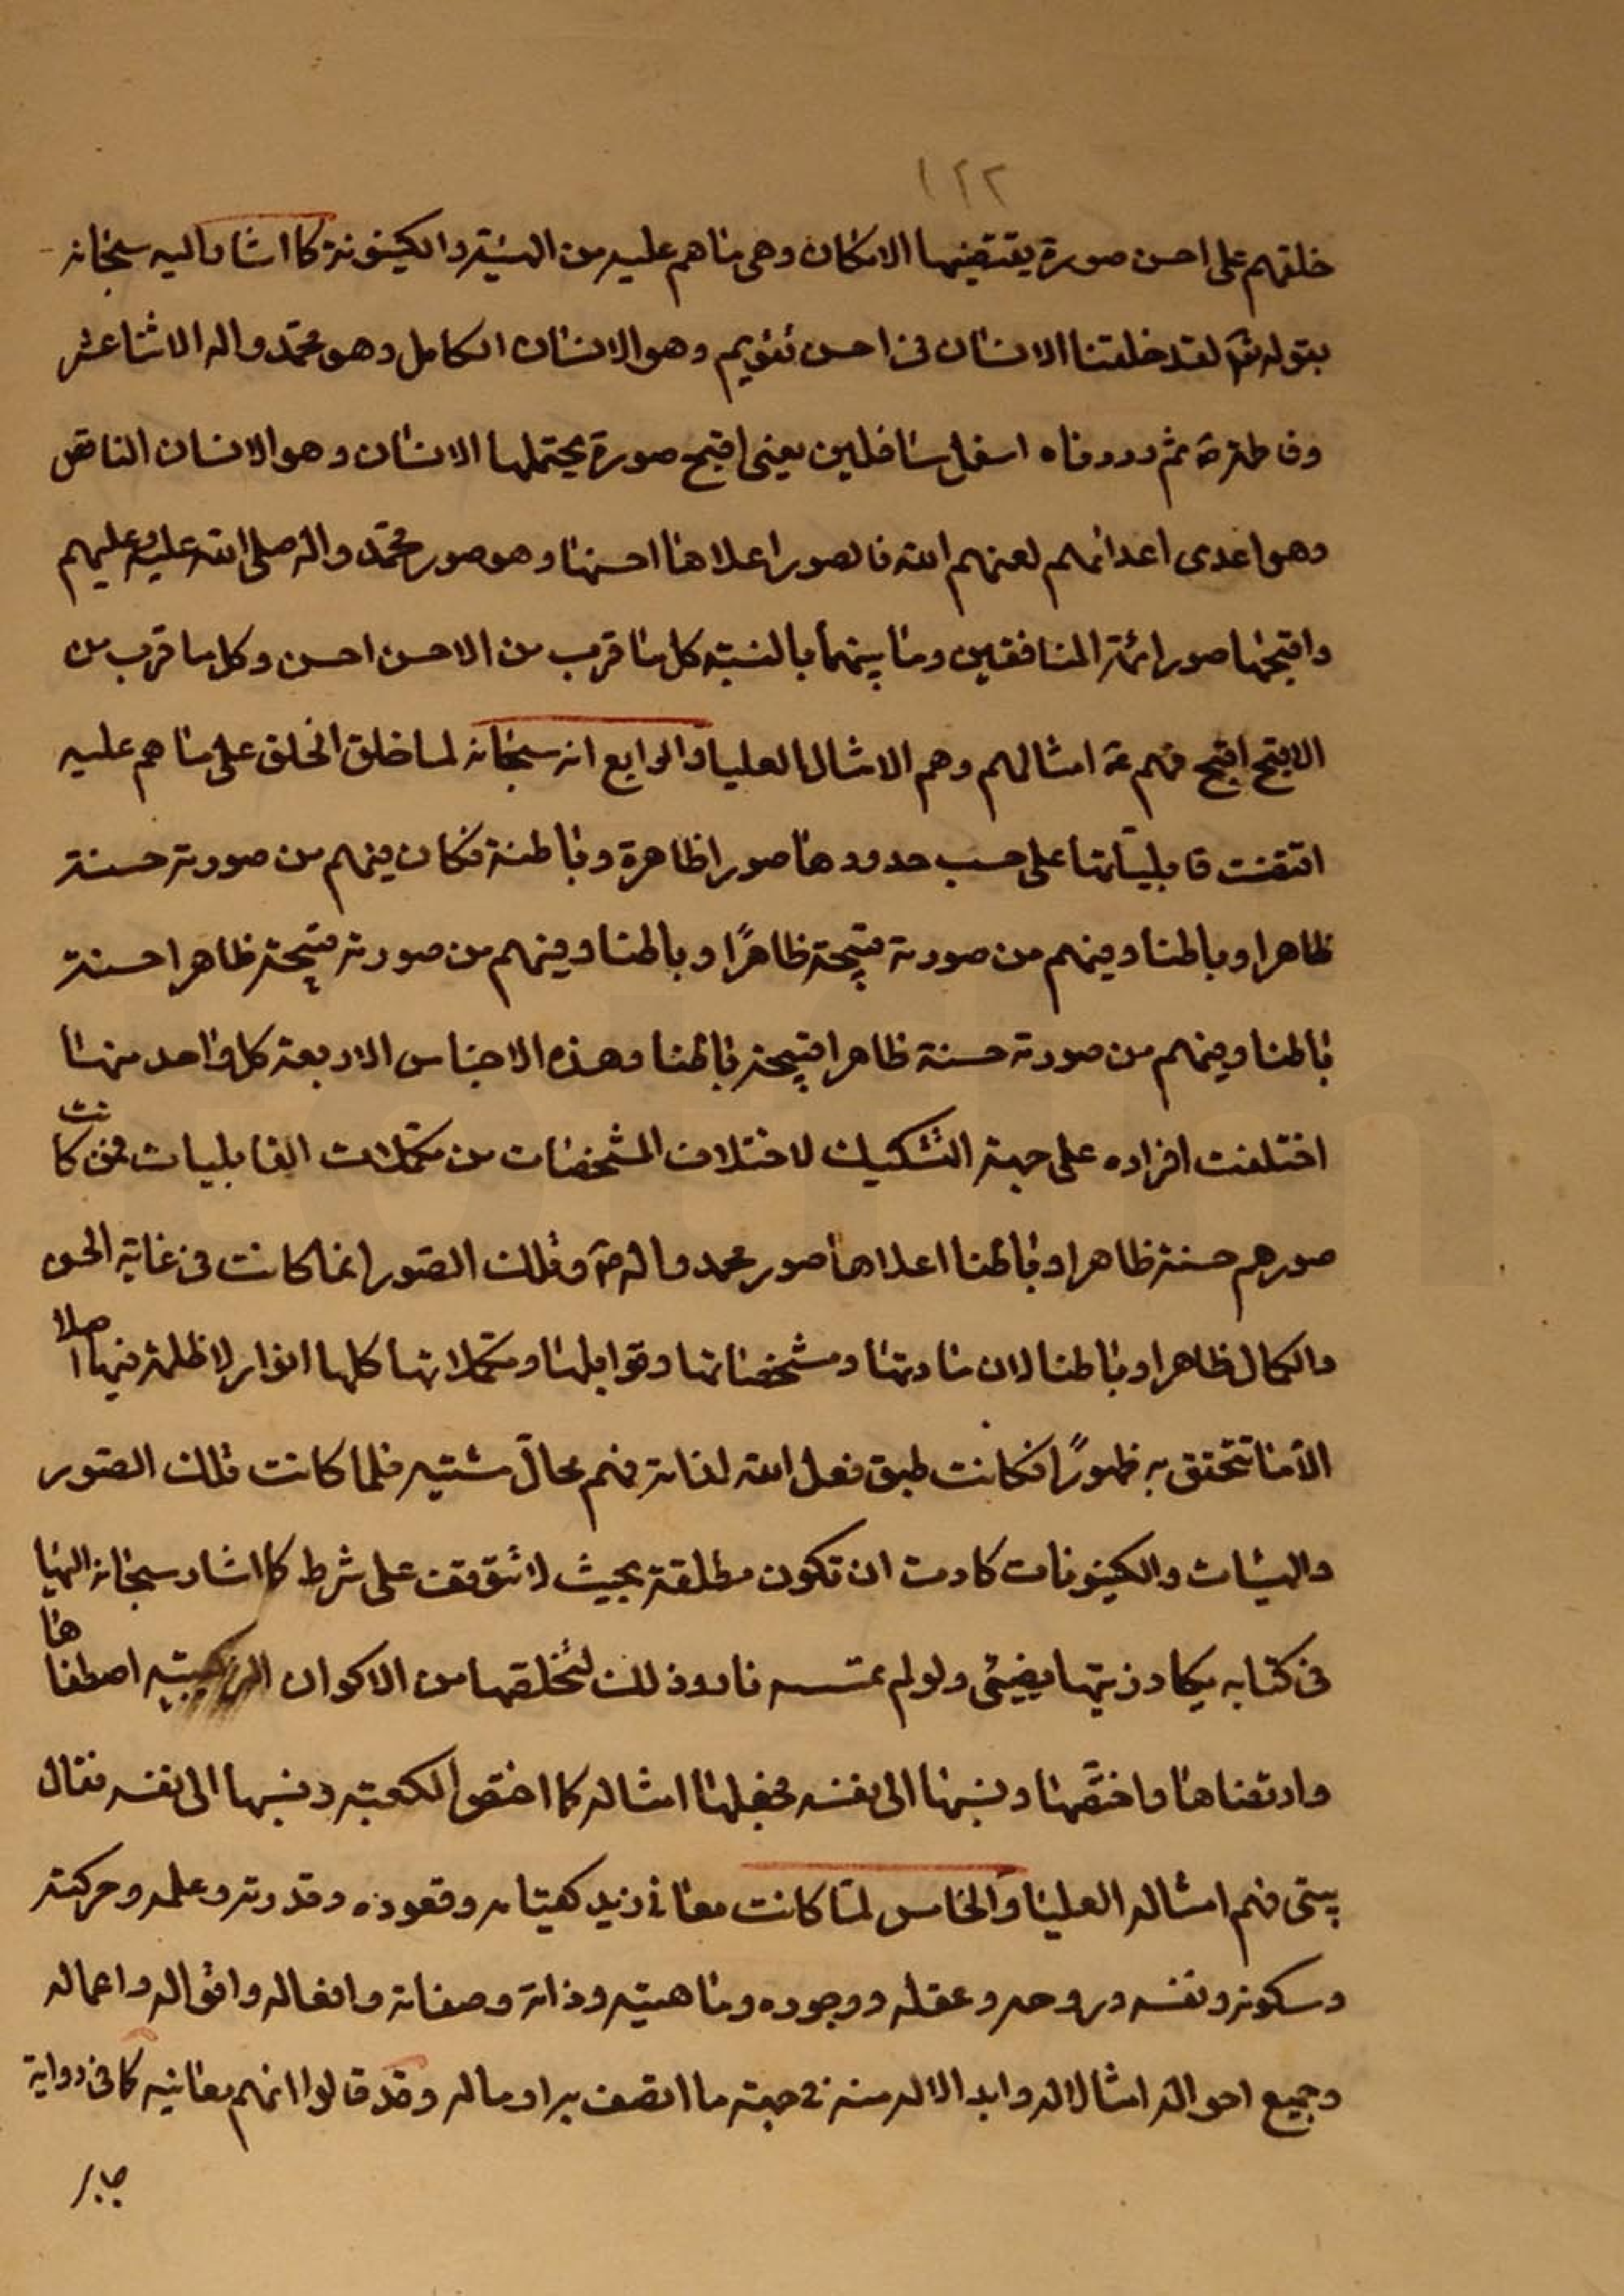 ١٢٢
خلقهم على احسن صورة يقتضيها الامكان وهى ما هم عليه من الهيئة والكينونة كما اشار اليه سبحانه
بقوله تعا لقد خلقنا الانسان فى احسن تقويم وهو الانسان الكامل وهو محمّد واله الاثنا عشر
وفاطمة ص ثم رددناه اسفل سافلين يعنى اقبح صورة يحتملها الانسان وهو الانسان الناقص
وهو اعدى اعدائهم لعنهم الله فالصور اعلاها احسنها وهو صور محمّد واله صلى الله عليه وعليهم
واقبحها صور ائمة المنافقين وما بينهما بالنسبة كل ما قرب من الاحسن احسن وكل ما قرب من
الاقبح اقبح فهم ع امثالهم وهم الامثال العليا والرابع انه سبحانه لما خلق الخلق على ما هم عليه
اقتضت قابلياتها على حسب حدودها صورا ظاهرة وباطنة فكان منهم من صورته حسنة
ظاهرا وباطنا ومنهم من صورته قبيحة ظاهرًا وباطنا ومنهم من صورته قبيحة ظاهرا حسنة
باطنا ومنهم من صورته حسنة ظاهرا قبيحة باطنا وهذه الاجناس الاربعة كل واحد منها
اختلفت افراده على جهة التشكيك لاختلاف المشخصات من متمّمات القابليات فمن كانت
صورهم حسنة ظاهرا وباطنا اعلاها صور محمد واله ص وتلك الصور انما كانت فى غاية الحسن
والكمال ظاهرا وباطنا لان مادتها ومشخصاتها وقوابلها ومتمّماتها كلها انوار لا ظلمة فيها اصلا
الّا ما تتحقق به ظهورًا فكانت طبق فعل الله لذاته فهم محالّ مشيّته فلما كانت تلك الصور
والهيئات والكينونات كادت ان تكون مطلقة بحيث لا تتوقف على شرط كما اشار سبحانه اليها
فى كتابه يكاد زيتها يضيئ ولو لم تمسسه نار وذلك لتخلقها من الاكوان اصطفاها
وارتضاها واختصّها ونسبها الى نفسه فجعلها امثاله كما اختص الكعبة ونسبها الى نفسه فقال
بيتى فهم امثاله العليا والخامس لمّا كانت معانى زيد كقيامه وقعوده وقدرته وعلمه وحركته
وسكونه ونفسه وروحه وعقله ووجوده وماهيته وذاته وصفاته وافعاله واقواله واعماله
وجميع احواله امثالا له وابدالا له منه فى جهة ما اتصف به او ماله وقد قالوا انهم معانيه كما فى رواية
جابر